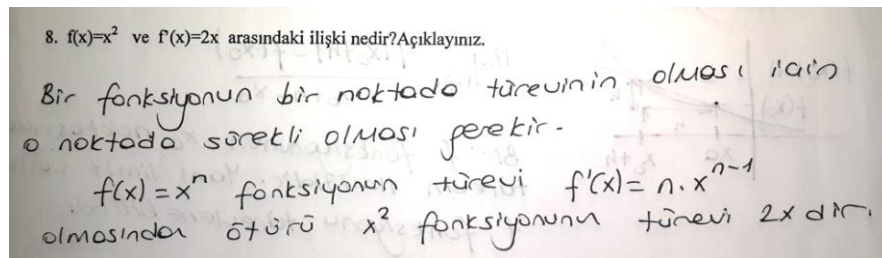 8. f(x)=x² ve f'(x)=2x arasındaki ilişki nedir?Açıklayınız.
Bir fonksiyonun bir noktada türevinin olması için
o noktada sürekli olması gerekir.
f(x) = xⁿ fonksiyonun türevi f'(x) = n.xⁿ⁻¹
olmasından ötürü x² fonksiyonunun türevi 2x dir.